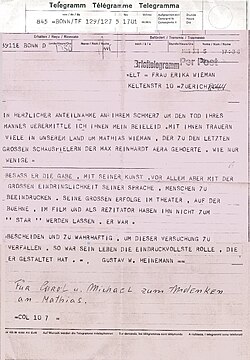 Telegramm Télégramme Telegramma
845 =BONN/TF 129/127 3 1701
9211E BONN D
Brieftelegramm Per Post
=ELT - FRAU ERIKA WIEMAN
KELTENSTR 10 =ZUERICH
IN HERZLICHER ANTEILNAHME AN IHREM SCHMERZ UM DEN TOD IHRES
MANNES UEBERMITTLE ICH IHNEN MEIN BEILEID . MIT IHNEN TRAUERN
VIELE IN UNSEREM LAND UM MATHIAS WIEMAN , DER ZU DEN LETZTEN
GROSSEN SCHAUSPIELERN DER MAX REINHARDT AERA GEHOERTE . WIE NUR
WENIGE -
BESASS ER DIE GABE , MIT SEINER KUNST , VOR ALLEM ABER MIT DER
GROSSEN EINDRINGLICHKEIT SEINER SPRACHE , MENSCHEN ZU
BEEINDRUCKEN . SEINE GROSSEN ERFOLGE IM THEATER , AUF DER
BUEHNE , IM FILM UND ALS REZITATOR HABEN IHN NICHT ZUM
'' STAR '' WERDEN LASSEN . ER WAR -
BESCHEIDEN UND ZU WAHRHAFTIG , UM DIESER VERSUCHUNG ZU
VERFALLEN . SO WAR SEIN LEBEN DIE EINDRUCKVOLLSTE ROLLE , DIE
ER GESTALTET HAT . = GUSTAV W. HEINEMANN +
Für Carol u. Michael zum Andenken
an Mathias.
=COL 10 7 =